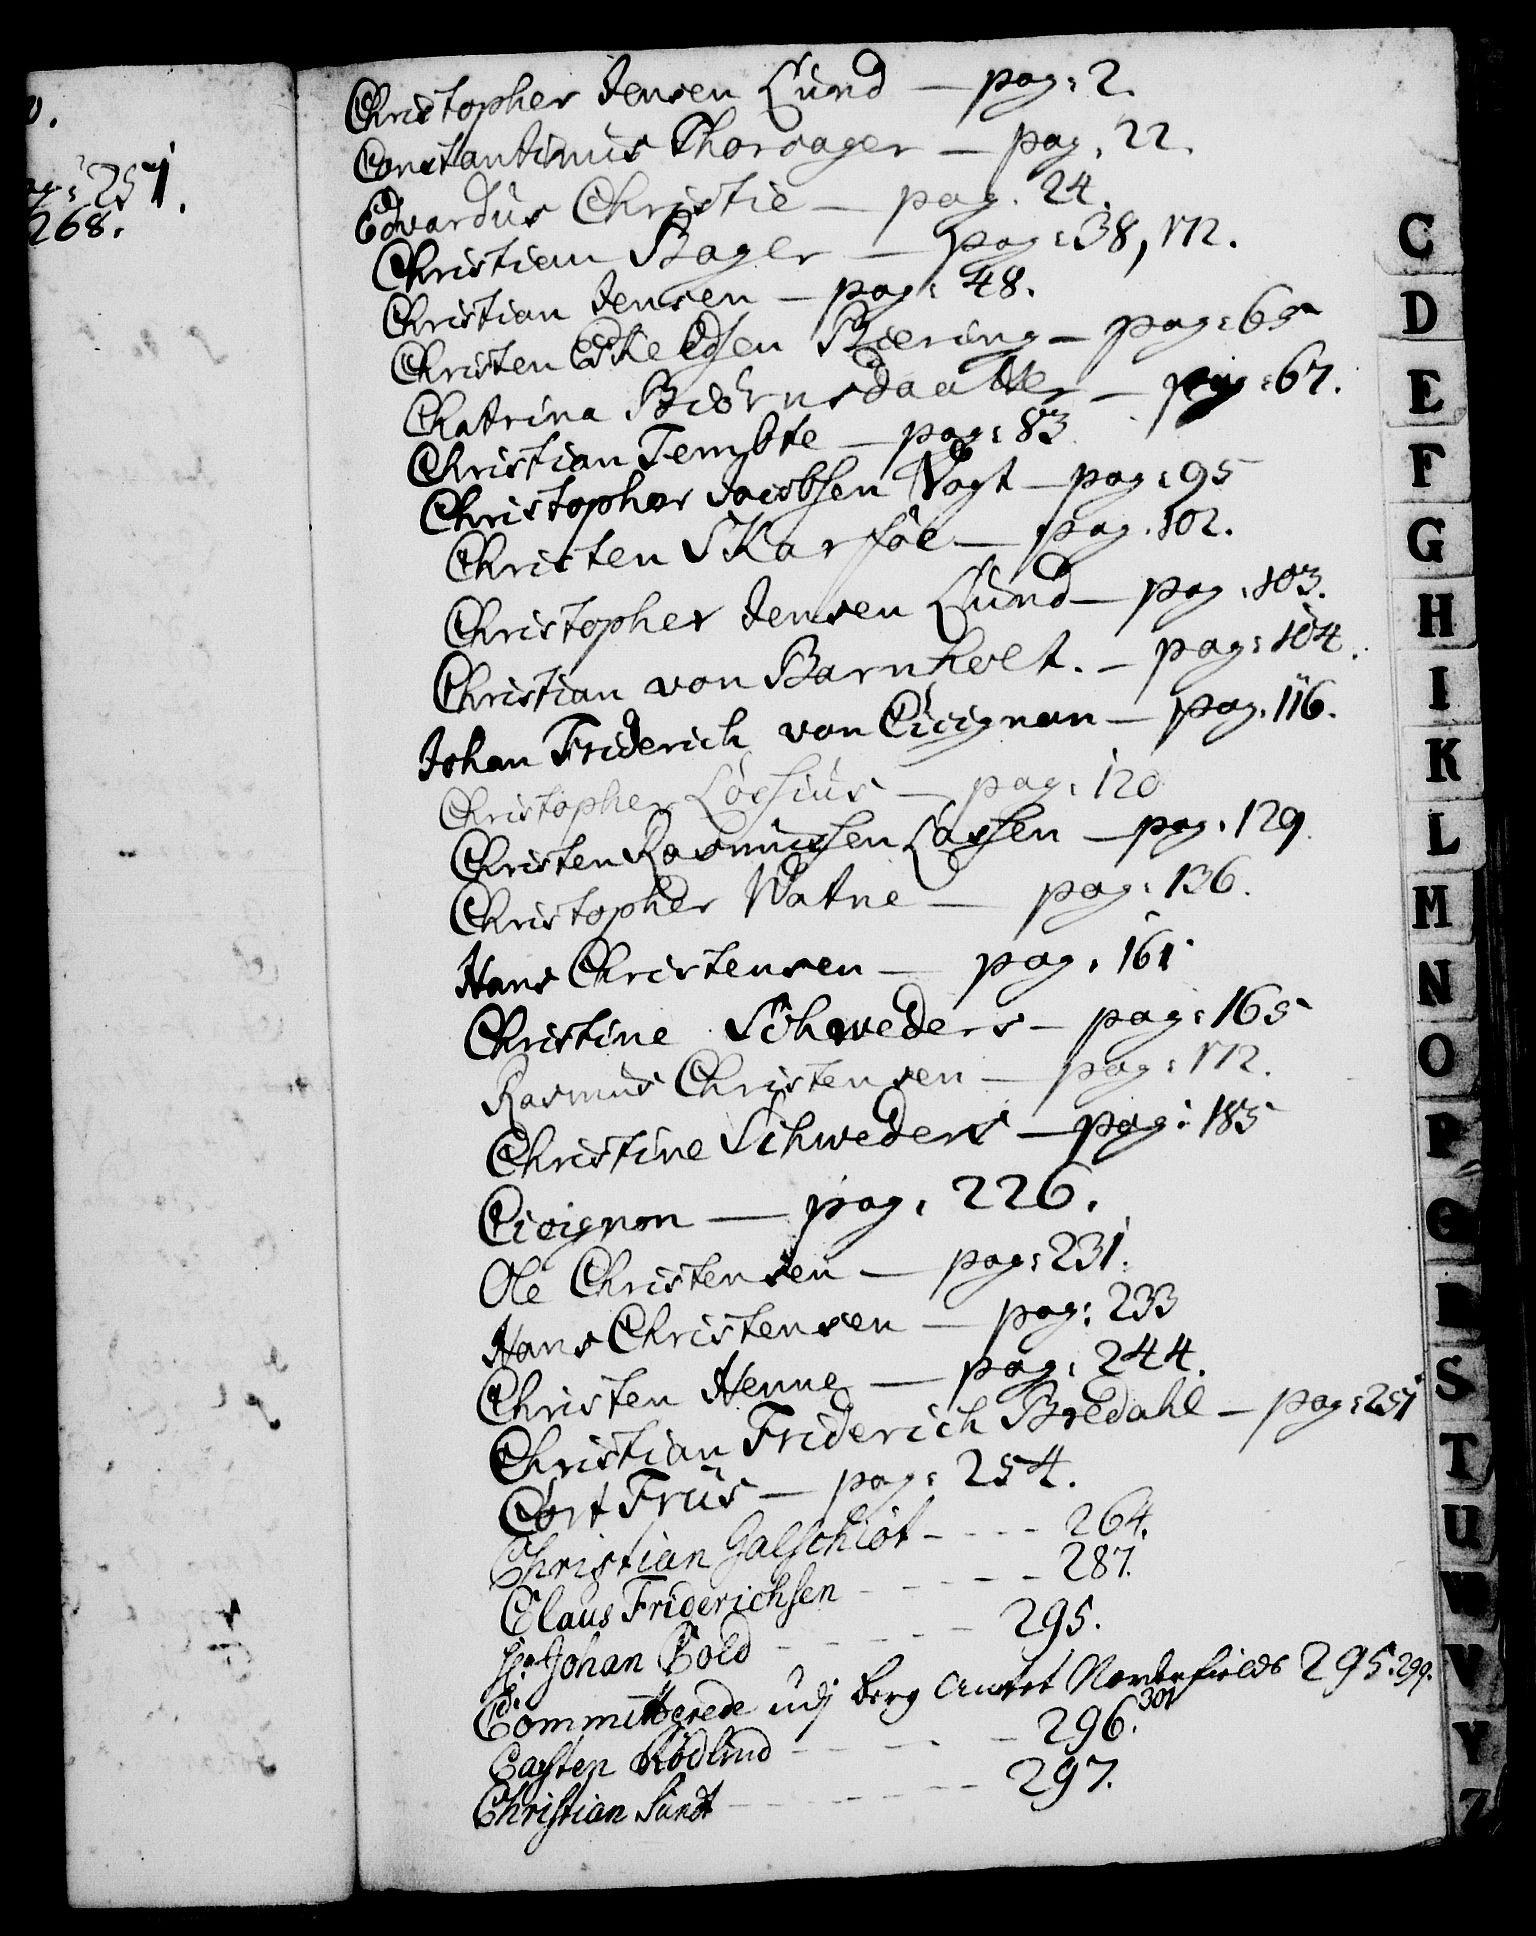 ag: 251.
268.
Christopher Jensen Lund — pag: 2.
Constantinus Thorsager — pag. 22.
Edvardus Christie — pag. 24.
Christian Bager — pag: 38, 172.
Christian Jensen — pag: 48.
Christen Eskeldsen Biering — pag: 65
Chatrina Biörnsdaatter — pag: 67.
Christian Tembte — pag: 83
Christopher Jacobsen Vogt — pag: 95
Christen Skarsöe — pag. 102.
Christopher Jensen Lund — pag. 103.
Christian von Barnholt. — pag: 104.
Johan Friderich von Cicignon — pag. 116.
Christopher Lösius — pag: 120
Christen Rasmussen Lassen — pag. 129.
Christopher Watne — pag: 136.
Hans Christensen — pag. 161
Christine Schweders — pag: 165
Rasmus Christensen — pag: 172.
Christine Schweders — pag: 185
Cicignon — pag. 226.
Ole Christensen — pag: 231.
Hans Christensen — pag: 233
Christen Henne — pag: 244.
Christian Friderich Bredahl — pag: 251
Cort Friis — pag: 254.
Christian Galschiöt - - - - 264.
Claus Friderichsen - - - - - 287.
Hr. Johan Cold - - - - - - 295.
Committerede udj Berg Amtet Nordenfields 295. 299.
301
Carsten Rödlind - - - - - 296.
Christian Sundt - - - - - - 297.
C
D
E
F
G
H
I
K
L
M
N
O
P
Q
R
S
T
U
W
V
Y
Z